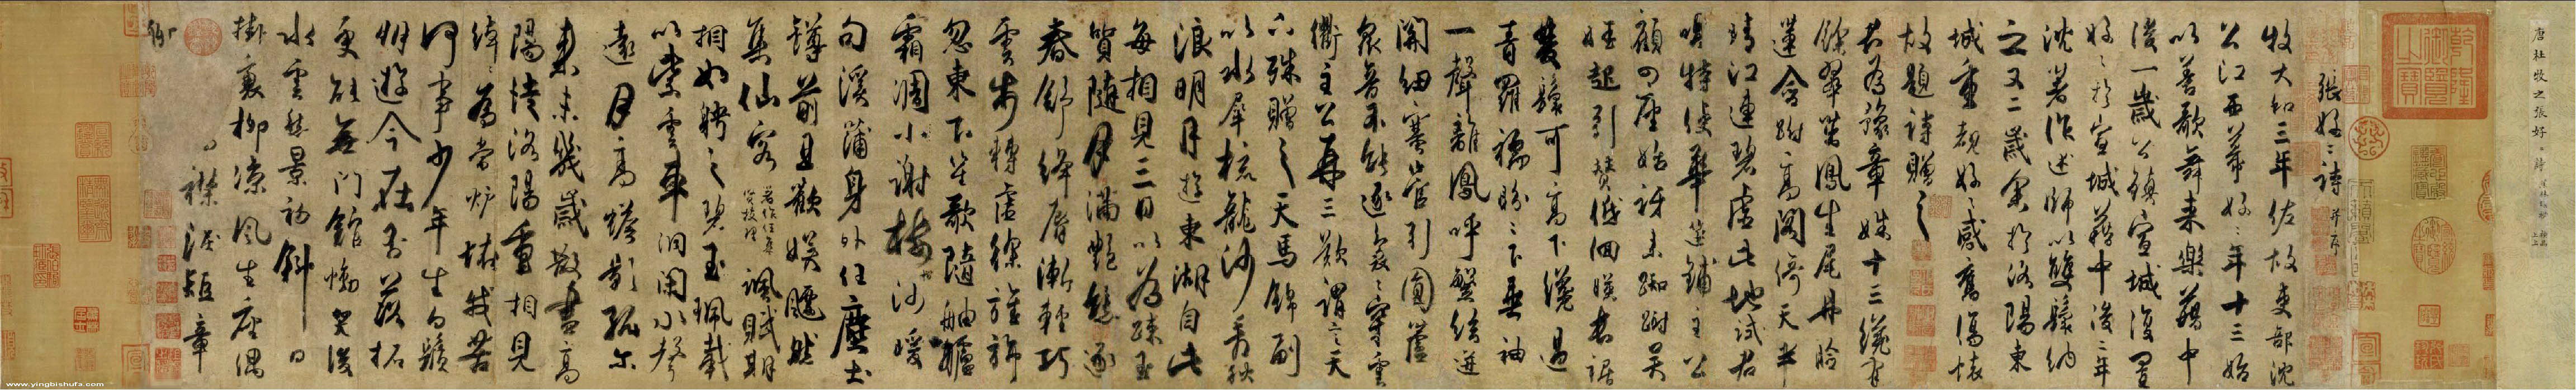 唐杜牧之張好好詩
張好好詩 并序
牧大和三年佐故吏部沈
公江西幕好好年十三始
以善歌舞来樂籍中
後一歲公鎮宣城復置
好好於宣城籍中後二年
沈著作述師以雙鬟納
之又二歲余於洛陽東
城重覩好好感舊傷懷
故題詩贈之
君為豫章姝十三纔有
餘翠茁鳳生尾丹臉
蓮含跗高閣倚天半
晴江連碧虛此地試君
唱特使華筵鋪主公
顧四座始訝来踟躕吳
娃起引贊低佪暎長裾
雙鬟可高下纔過
青羅襦盼盼下垂袖
一聲離鳳呼繁絃迸
關紐塞管引圓蘆
衆音不能逐裊裊穿雲
衢主公再三歎謂言天
下殊贈之天馬錦副
以水犀梳龍沙看秋
浪明月遊東湖自此
每相見三日以為踈玉
質隨月滿艷態逐
春舒絳脣漸輕巧
雲步轉虛徐旌旆
忽東下笙歌隨舳艫
霜凋小謝樹沙暖
句溪蒲身外任塵土
罇前且歡娛飄然
集仙客著作任集賢校理諷賦期
相如聘之碧玉珮載
以紫雲車洞閉水聲
遠月高蟾影孤尔
来未幾歲散盡高
陽徒洛陽重相見
綽綽為當爐怪我苦
何事少年生白鬚
朋遊今在否落拓
更能無門館慟哭後
水雲愁景初斜日
掛衰柳涼風生座隅
襟淚短章
聊
www.yingbishufa.com